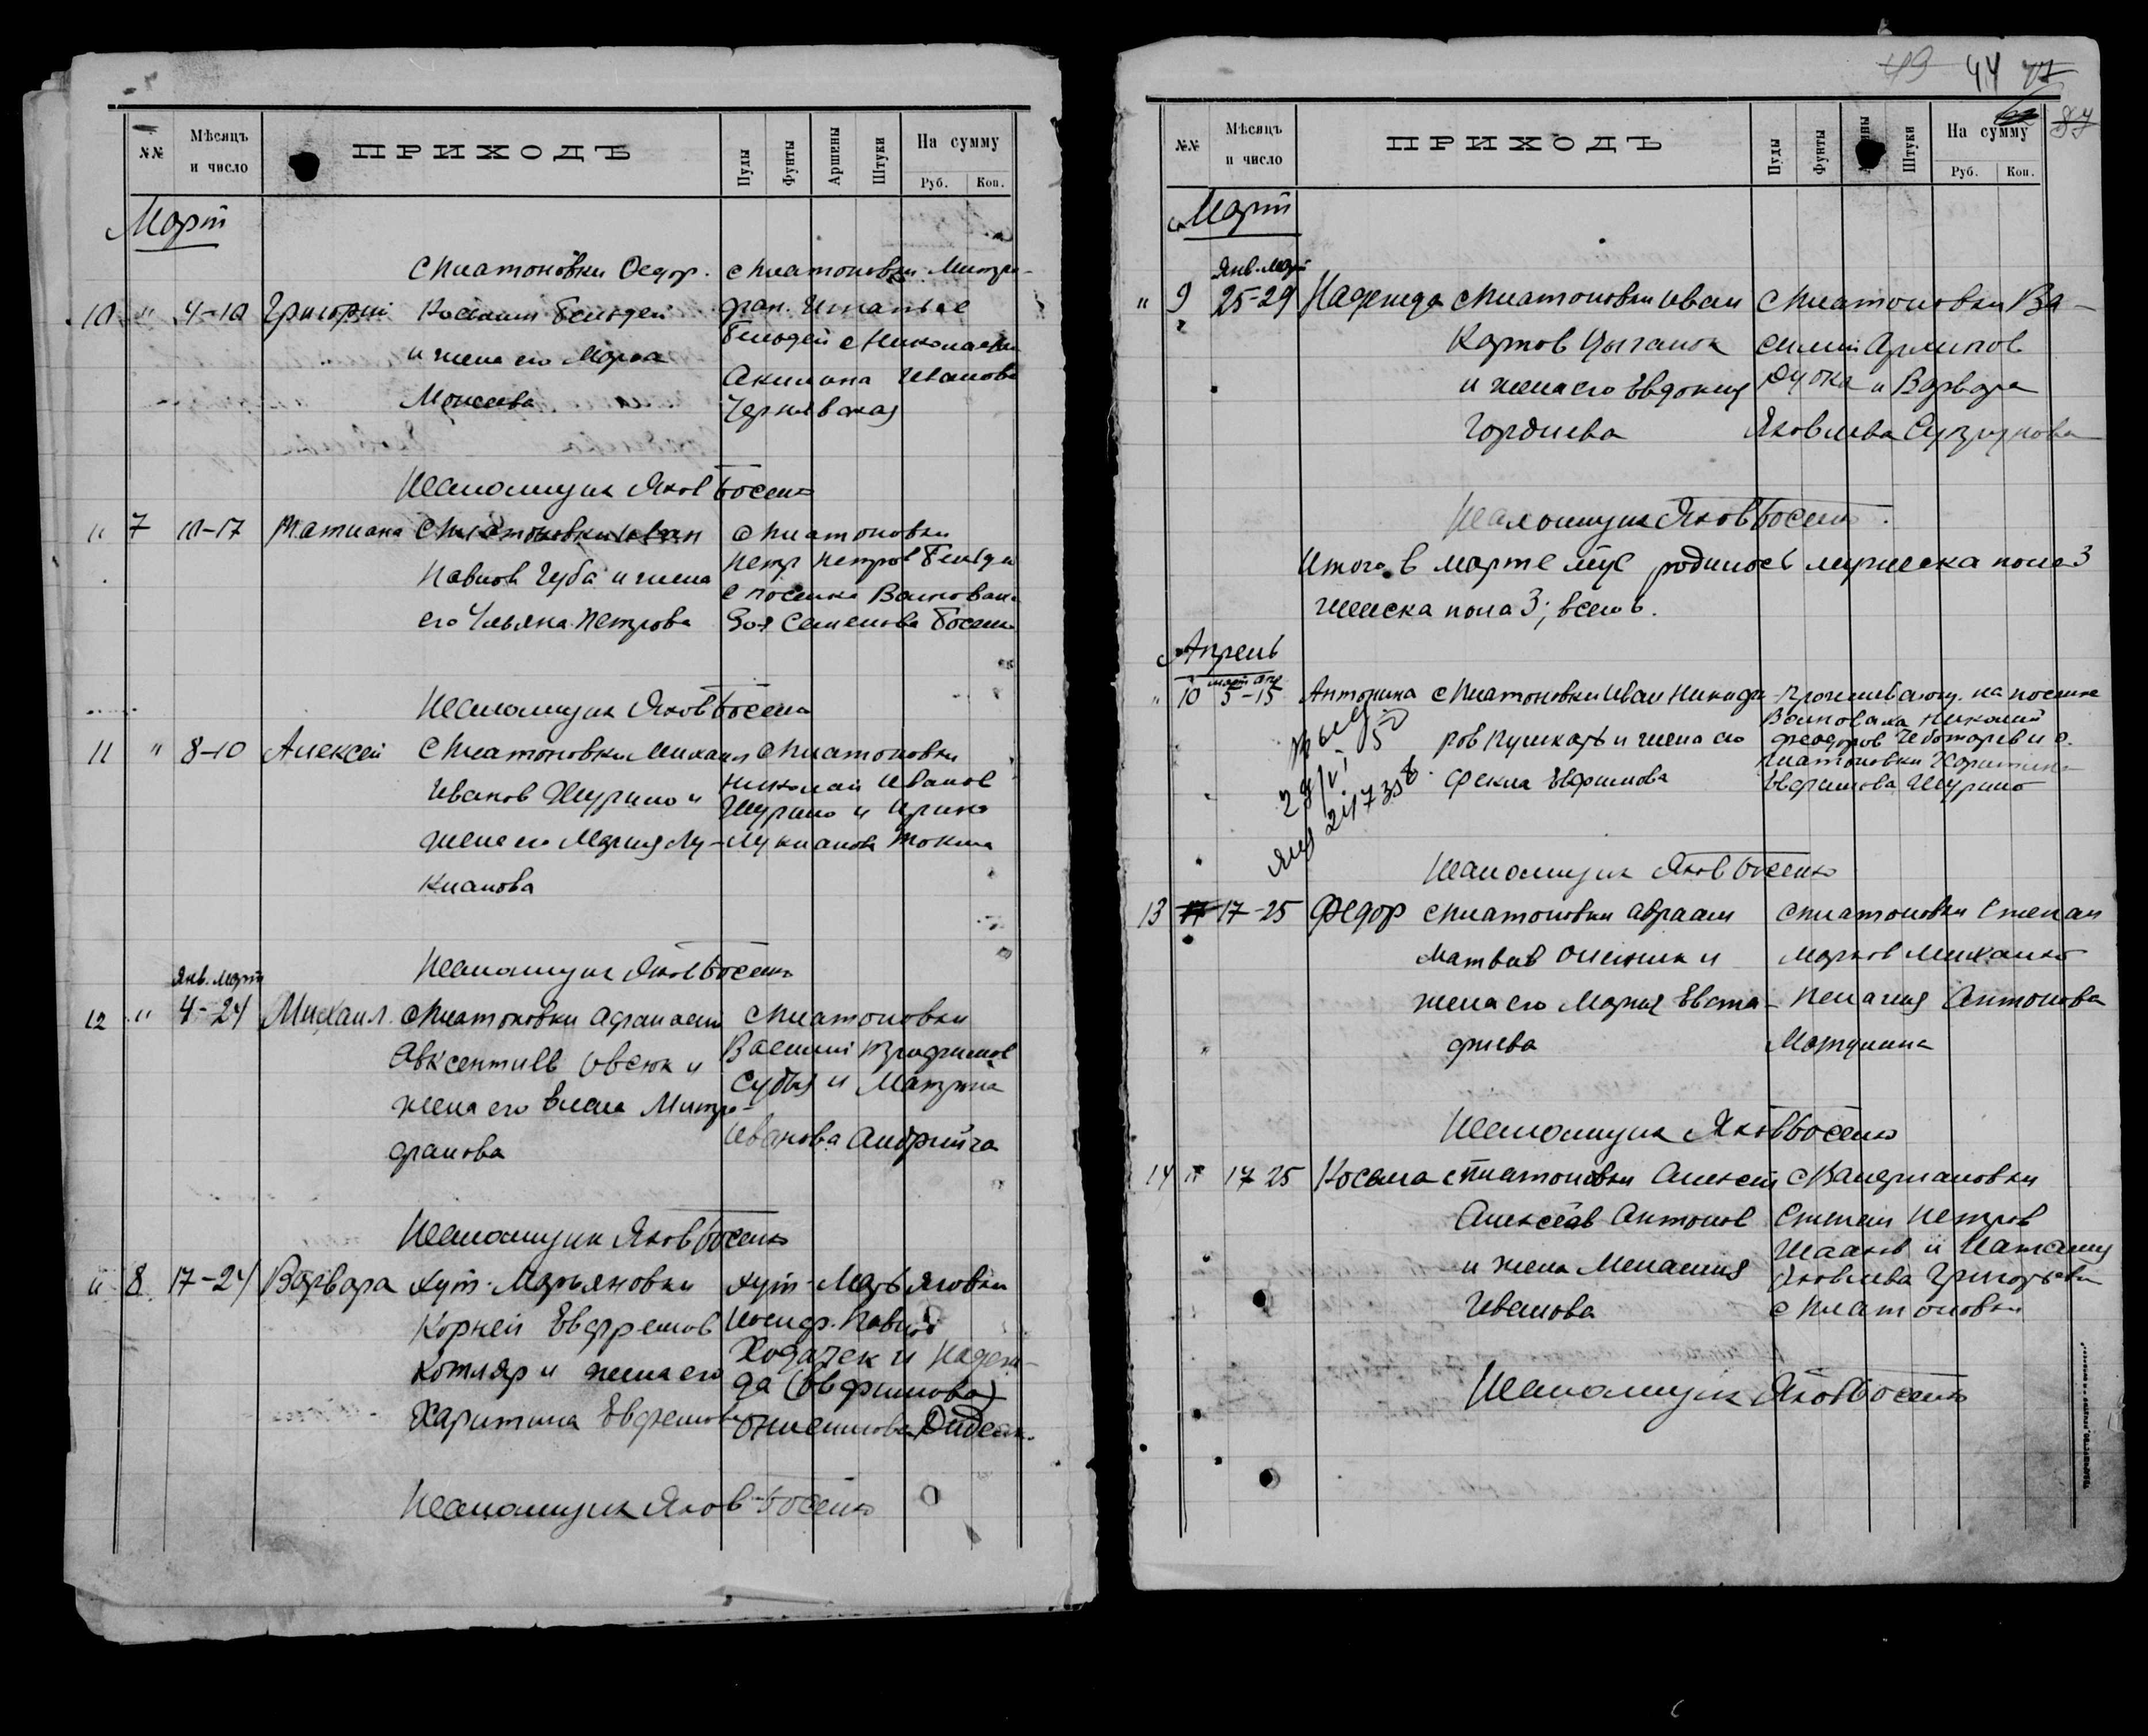 №№
Мѣсяцъ и число
ПРИХОДЪ
Пуды
Фунты
Аршины
Штуки
На сумму
Руб.
Коп.
Март
с Платоновки Федор. с Платоновки Митро-
10 " 4-10 Григорий фан. Игнатьев
и жена его Марфа с Николаевки
Моисеева Акилина Иванова
Чернявская
Псаломщик Яков Босенко
" 7 10-17 Татиана с Платоновки Иван с Платоновки
Павлов Губа и жена Петр Петров
его Ульяна Петрова с поселка Волновах.
Зоя Семенова Босенко
Псаломщик Яков Босенко
11 " 8-10 Алексей с Платоновки Михаил с Платоновки
Иванов Шурило и Николай Иванов
Шурило и Ирина
жена его Мария Лу- Лукианова
кианова
Псаломщик Яков Босенко
Янв. Март
12 " 4-24 Михаил с Платоновки Афанасий с Платоновки
Авксентиев Овсюк и Василий Трифимов
жена его Елена Митро- и Матрона
фанова Иванова
Псаломщик Яков Босенко
" 8 17-24 Варвара хут. Марьяновки хут. Марьяновки
Корней Евфремов Иосиф. Павлов
Котляр и жена его Ходачек и Надеж-
Харитина Евфремова да (Евфимова)
Онисимова
Псаломщик Яков Босенко
49 44
87
№№
Мѣсяцъ и число
ПРИХОДЪ
Пуды
Фунты
Штуки
На сумму
Руб.
Коп.
Март
Янв. Март
" 9 25-29 Надежда с Платоновки Иван с Платоновки Ва-
Карпов Цыганок силий Архипов
и жена его Евдокия и Варвара
Гордиева Яковлева
Псаломщик Яков Босенко.
Итого в марте м-це родилось мужеска пола 3
женска пола 3; всего 6.
Апрель
март апр
" 10 5-15 Антонина с Платоновки Иван Никифо- проживающ. на поселке
ров Пушкарь и жена его Волноваха Николай
Феодоров Чеботарев и с.
Фекла Евфимова Платоновки Харитина
Евфимова Шурило
217358
Псаломщик Яков Босенко
13 17-25 Федор с Платоновки Авраам с Платоновки Степан
Матвиев Олейник и Марков Михайло
жена его Мария Евста- Пелагия Антонова
фиева
Псаломщик Яков Босенко
14 " 17 25 Косьма с Платоновки Алексей с Валериановки
Алексеев Антонов Степан Петров
и жена Мелания и Наталия
Иванова Яковлева Григорьева
с Платоновки
Псаломщик Яков Босенко